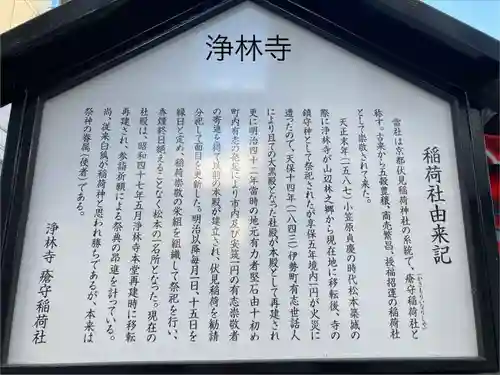 浄林寺
稲荷社由来記
当社は京都伏見稲荷神社の系統で、瘡守稲荷社と
称す。古来から五穀豊穣、商売繁昌、授福招運の稲荷社
として崇敬されて来た。
天正末年(一五八七)小笠原貞慶の時代松本築城の
際に浄林寺が山辺林之郷から現在地に移転後、寺の
鎮守神として祭祀されたが享保五年境内一円が火災に
遭ったので、天保十四年(一八四三)伊勢町有志世話人
により旦ての大黒殿となった社殿が本殿として再建され
更に明治四十一年当時の地元有力者堅石由十初め
町内有志の発起により市内及び安筑一円の有志崇敬者
の寄進を得て以前の本殿が建立され、伏見稲荷を勧請
分祀して面目を更新した。明治以降毎月一日、十五日を
縁日と定め、稲荷崇敬の永組を組織して祭祀を行い、
奉燈終日絶えることなく松本の一名所となった。現在の
社殿は、昭和四十七年五月浄林寺本堂再建時に移転
再建され、参詣祈願による祭典の昂進を計っている。
尚、従来白狐が稲荷神と思われ勝ちであるが、本来は
祭神の眷属(使者)である。
浄林寺 瘡守稲荷社